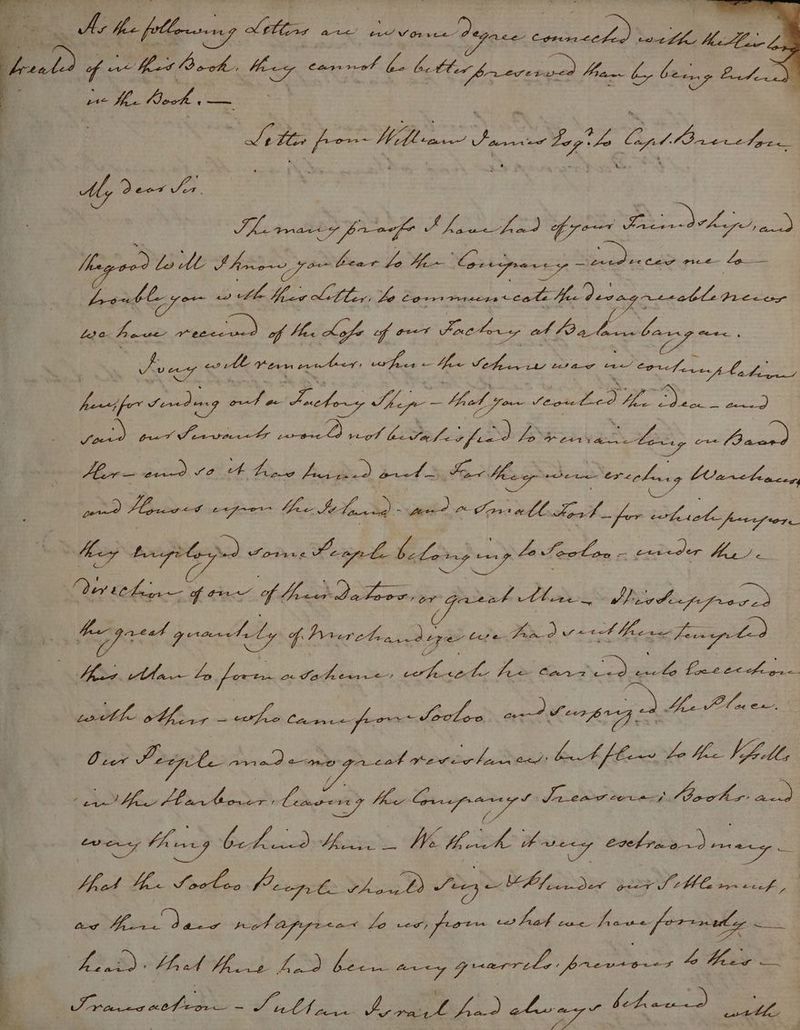 As the following Letters are in some degree connected with the History
treated of in this Book, they cannot be better preserved than by being Entered
in the Book. —
Letter from William James Esqr. to Capt. Brereton
My dear Sir.
The many proofs I have had of your Friendship, and
the good will I know you bear to the Company – induces me to
trouble you with this Letter, to communicate the disagreeable news
we have received of the Loss of our Factory at Balambangan.
I very well remember, when the Scheme was in contemplation
here, for sending out a Factory Ship – that you scouted the idea – and
said our Servants would not be satisfied to remain long on Board
Her – and so it has turned out – For they were erecting Warehouses
and Houses upon the Island – and a Small Fort – for which purpose
they employed some People belonging to Sooloo – under the
Direction of one of their Datoos, or great Men – It is supposed
the great quantity of Merchandize we had sent there tempted
this Man to form a scheme, which he carried into Execution
with others – who came from Sooloo and surprized the Place.
Our People made no great resistance, but flew to the Vessells
in the Harbour, leaving the Companys Treasure, Books, and
every thing behind them – We think it very extraordinary –
that the Sooloo People should Seize & Plunder our Settlement,
as there does not appear to us, from what we have formerly —
heard, that there had been any quarrels, previous to this –
Transaction – Sultan Israel had always behaved with